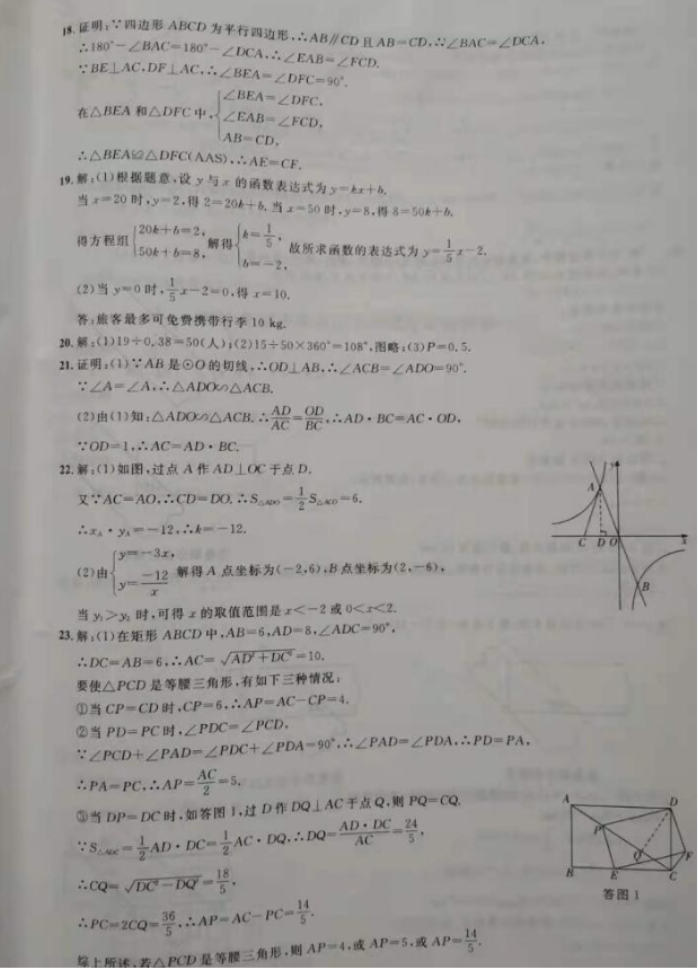 18. 证明:∵四边形 ABCD 为平行四边形,∴AB∥CD 且 AB=CD,∴∠BAC=∠DCA,
∴180°-∠BAC=180°-∠DCA,∴∠EAB=∠FCD.
∵BE⊥AC,DF⊥AC,∴∠BEA=∠DFC=90°.
在△BEA 和△DFC 中,{∠BEA=∠DFC,
∠EAB=∠FCD,
AB=CD,
∴△BEA≌△DFC(AAS),∴AE=CF.
19. 解:(1)根据题意,设 y 与 x 的函数表达式为 y=kx+b.
当 x=20 时,y=2,得 2=20k+b,当 x=50 时,y=8,得 8=50k+b.
得方程组{20k+b=2, 50k+b=8, 解得{k=1/5, b=-2, 故所求函数的表达式为 y=1/5x-2.
(2)当 y=0 时,1/5x-2=0,得 x=10.
答:旅客最多可免费携带行李 10 kg.
20. 解:(1)19÷0.38=50(人);(2)15÷50×360°=108°,图略;(3)P=0.5.
21. 证明:(1)∵AB 是⊙O 的切线,∴OD⊥AB,∴∠ACB=∠ADO=90°.
∵∠A=∠A,∴△ADO∽△ACB.
(2)由(1)知:△ADO∽△ACB.∴AD/AC=OD/BC,∴AD·BC=AC·OD,
∵OD=1,∴AC=AD·BC.
22. 解:(1)如图,过点 A 作 AD⊥OC 于点 D.
又∵AC=AO,∴CD=DO.∴S△ADO=1/2S△ACO=6.
∴xA·yA=-12,∴k=-12.
(2)由{y=-3x, y=-12/x 解得 A 点坐标为(-2,6),B 点坐标为(2,-6),
当 y₁>y₂ 时,可得 x 的取值范围是 x<-2 或 0<x<2.
A
y
C D O x
B
23. 解:(1)在矩形 ABCD 中,AB=6,AD=8,∠ADC=90°,
∴DC=AB=6,∴AC=√(AD²+DC²)=10.
要使△PCD 是等腰三角形,有如下三种情况:
①当 CP=CD 时,CP=6,∴AP=AC-CP=4.
②当 PD=PC 时,∠PDC=∠PCD,
∵∠PCD+∠PAD=∠PDC+∠PDA=90°,∴∠PAD=∠PDA,∴PD=PA,
∴PA=PC,∴AP=AC/2=5.
③当 DP=DC 时,如答图 1,过 D 作 DQ⊥AC 于点 Q,则 PQ=CQ.
∵S△ADC=1/2AD·DC=1/2AC·DQ,∴DQ=AD·DC/AC=24/5,
∴CQ=√(DC²-DQ²)=18/5,
∴PC=2CQ=36/5,∴AP=AC-PC=14/5.
综上所述,若△PCD 是等腰三角形,则 AP=4,或 AP=5,或 AP=14/5.
A D
P
Q F
B E C
答图 1